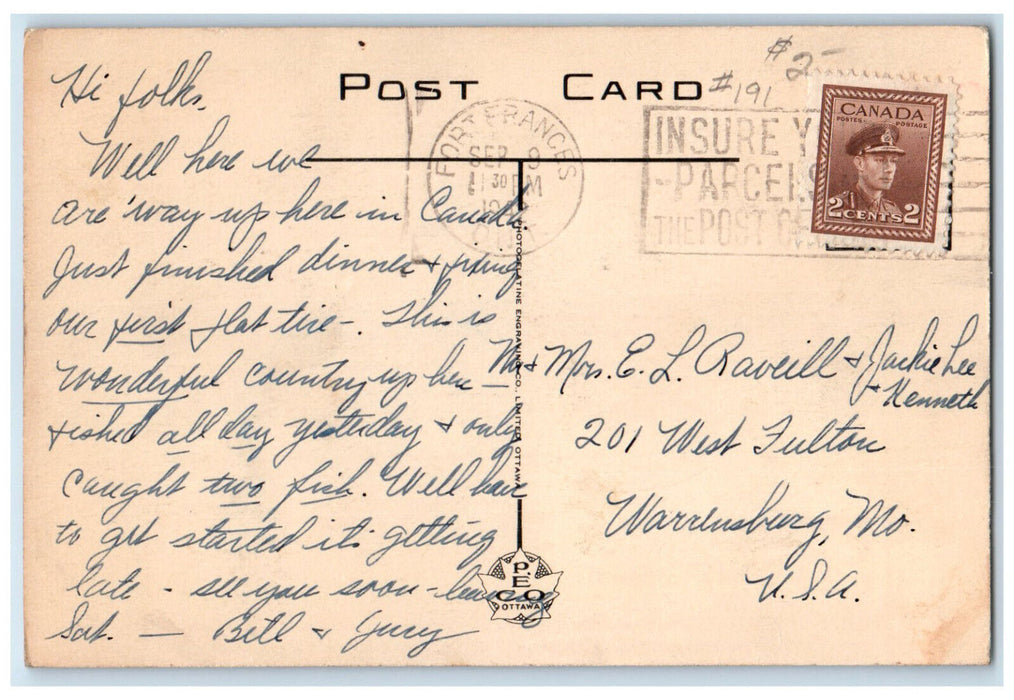 POST CARD
#191
$2-
FORT FRANCES
SEP 9
11 30 PM
ONT
INSURE Y
PARCELS
THE POST OFFICE
CANADA
POSTES POSTAGE
2 CENTS 2
Hi folks,
Well here we
are 'way up here in Canada.
Just finished dinner & fixing
our first flat tire -. This is
wonderful country up here -
fished all day yesterday & only
caught two fish. We'll have
to get started it's getting
late - see you soon - leaving
Sat. - Bill &
PHOTOGELATINE ENGRAVING CO., LIMITED OTTAWA
P.
E
CO
OTTAWA
Mr & Mrs. E. L. Raveill & Jackie Lee
& Kenneth
201 West Fulton
Warrensburg, Mo.
U.S.A.